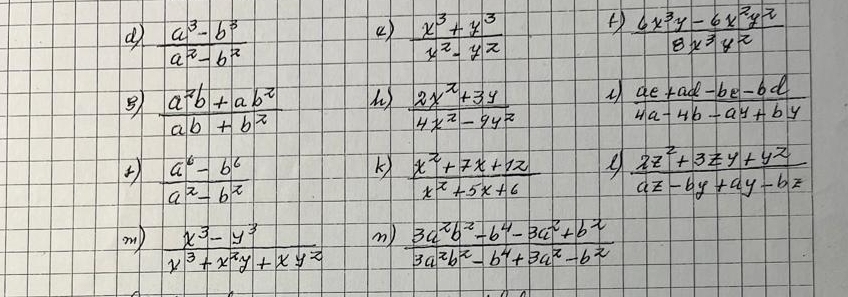 d) (a³ - b³)/(a² - b²) e) (x³ + y³)/(x² - y²) f) (6x³y - 6x²y²)/(8x³y²)
g) (a²b + ab²)/(ab + b²) h) (2x² + 3y)/(4x² - 9y²) i) (ac + ad - bc - bd)/(4a - 4b - ay + by)
j) (a⁶ - b⁶)/(a² - b²) k) (x² + 7x + 12)/(x² + 5x + 6) l) (2z² + 3zy + y²)/(az - by + ay - bz)
m) (x³ - y³)/(x³ + x²y + xy²) n) (3a²b² - b⁴ - 3a² + b²)/(3a²b² - b⁴ + 3a² - b²)